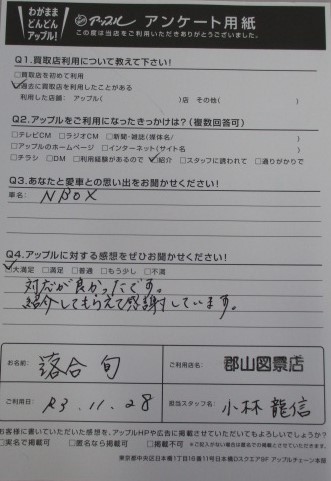 わがまま
どんどん
アップル!
アップル アンケート用紙
この度は当店をご利用いただきありがとうございました。
Q1.買取店利用について教えて下さい!
□買取店を初めて利用
☑過去に買取店を利用したことがある
利用した店舗: アップル( )店 その他( )
Q2.アップルをご利用になったきっかけは?(複数回答可)
□テレビCM □ラジオCM □新聞・雑誌(媒体名/ )
□アップルのホームページ □インターネット(サイト名 )
□チラシ □DM □利用経験があるので ☑紹介 □スタッフに誘われて □通りがかりで
Q3.あなたと愛車との思い出をお聞かせください!
車名: NBOX
Q4.アップルに対する感想をぜひお聞かせください!
☑大満足 □満足 □普通 □もう少し □不満
対応が良かったです。
紹介してもらえて感謝しています。
お名前: 落合 旬
ご利用店名: 郡山図景店
ご利用日: R3.11.28
担当スタッフ名: 小林 龍信
お客様に書いていただいた感想を、アップルHPや広告に掲載させていただいてもよろしいでしょうか?
□実名で掲載可 □匿名なら掲載可 □掲載不可 ※ご記入がない場合は匿名での掲載とさせていただきます。
東京都中央区日本橋1丁目16番11号日本橋Dスクエア5F アップルチェーン本部